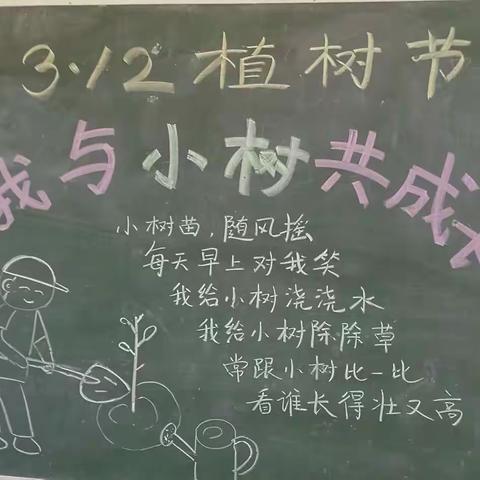 3·12植树节
我与小树共成长
小树苗，随风摇
每天早上对我笑
我给小树浇浇水
我给小树除除草
常跟小树比一比
看谁长得壮又高